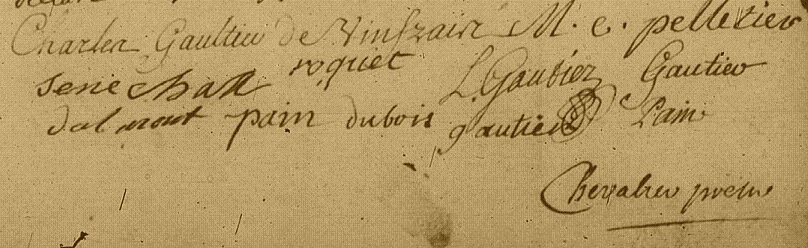 Charles Gaultier de Vinfrair M. e. pelletier
roquet L. Gautier Gautier
senechall
dalmont pain dubois gautier Pain
Chevalier prestre